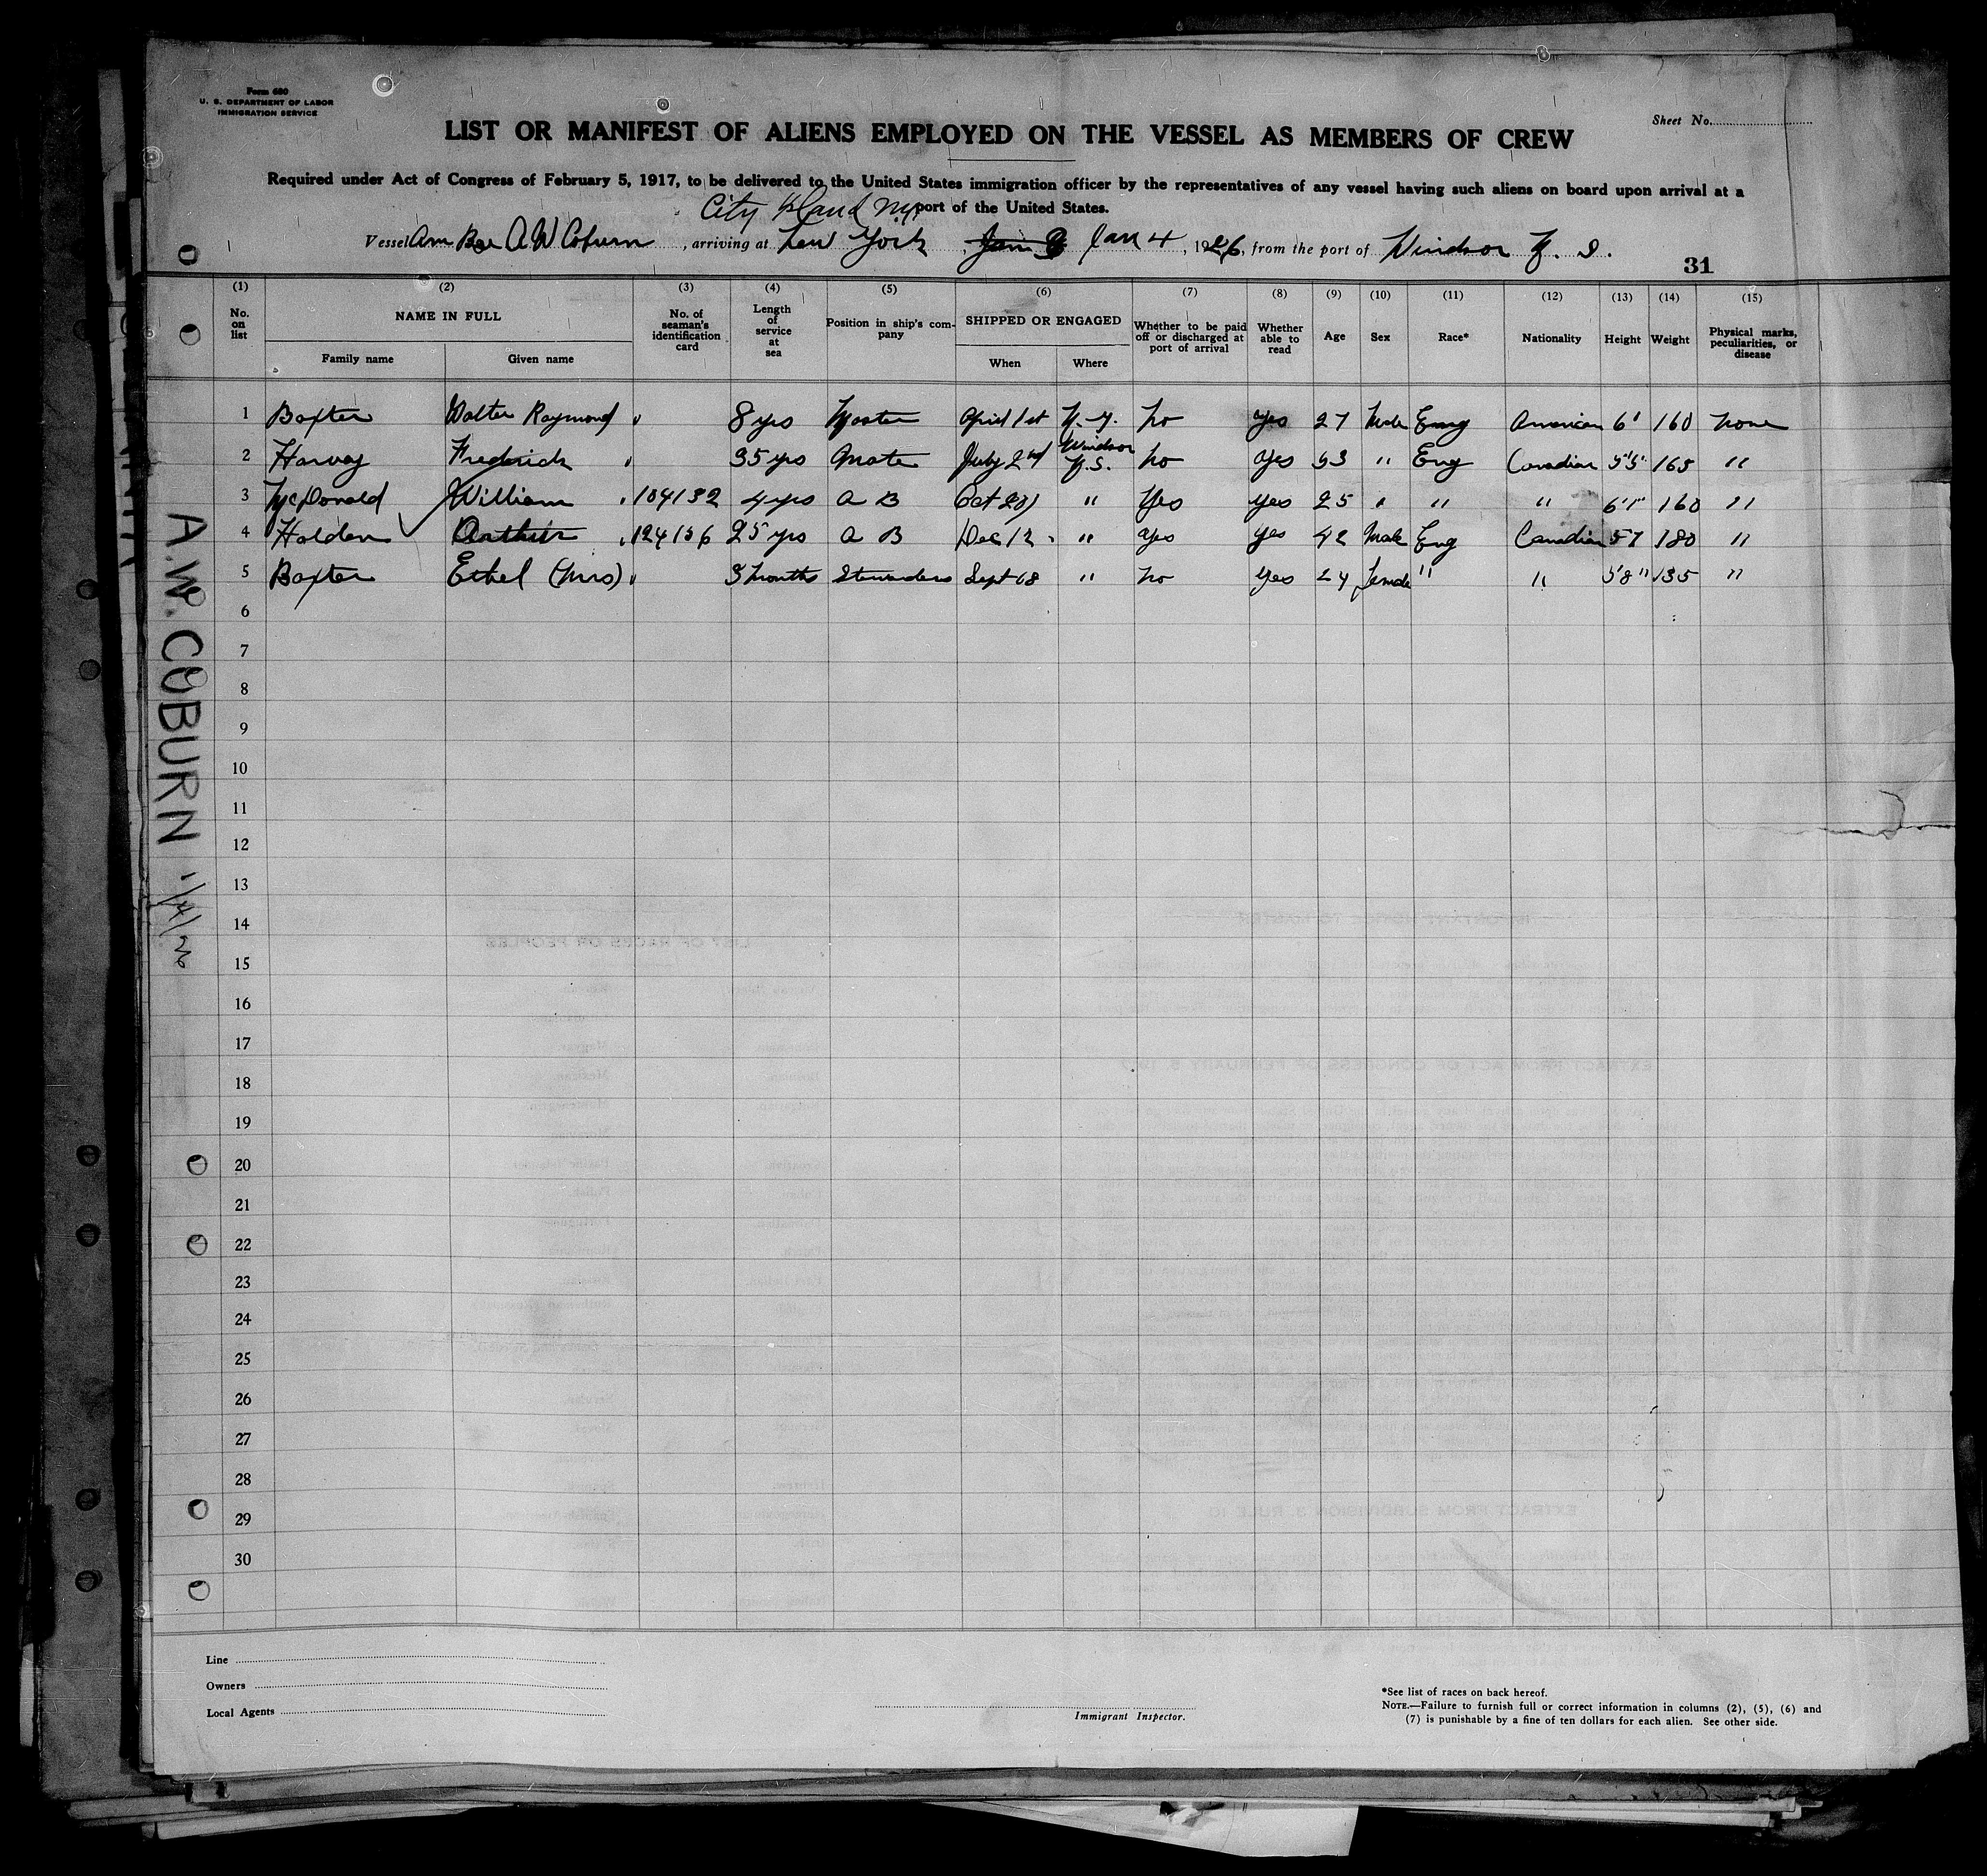 Form 680
U. S. DEPARTMENT OF LABOR
IMMIGRATION SERVICE
Sheet No.
LIST OR MANIFEST OF ALIENS EMPLOYED ON THE VESSEL AS MEMBERS OF CREW
Required under Act of Congress of February 5, 1917, to be delivered to the United States immigration officer by the representatives of any vessel having such aliens on board upon arrival at a
City Island NY port of the United States.
Vessel Am Bge A W Coburn, arriving at New York, Jan 3 Jan 4, 1926, from the port of Windsor N. S.
31
(1) (2) (3) (4) (5) (6) (7) (8) (9) (10) (11) (12) (13) (14) (15)
No. on list NAME IN FULL Family name Given name No. of seaman's identification card Length of service at sea Position in ship's company SHIPPED OR ENGAGED When Where Whether to be paid off or discharged at port of arrival Whether able to read Age Sex Race* Nationality Height Weight Physical marks, peculiarities, or disease
1 Baxter Walter Raymond 8 yrs Master April 1st N.Y. No yes 27 Male Eng American 6' 160 none
2 Harvey Frederick 35 yrs Mate July 2nd Windsor N.S. No yes 53 " Eng Canadian 5'5" 165 "
3 McDonald William 104132 4 yrs A B Oct 20 " Yes yes 25 " " " 6'1" 160 "
4 Holden Arthur 124156 25 yrs A B Dec 12 " yes yes 42 Male Eng Canadian 57 180 "
5 Baxter Ethel (Mrs) 3 months Stewardess Sept 18 " no yes 24 female " " 5'8" 135 "
6
7
8
9
10
11
12
13
14
15
16
17
18
19
20
21
22
23
24
25
26
27
28
29
30
A.W. COBURN 1/4/26
Line
Owners
Local Agents
Immigrant Inspector.
*See list of races on back hereof.
NOTE.—Failure to furnish full or correct information in columns (2), (5), (6) and
(7) is punishable by a fine of ten dollars for each alien. See other side.